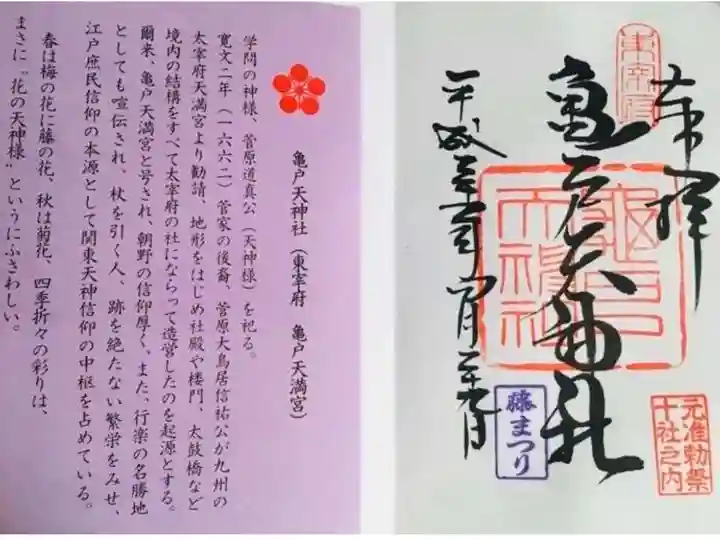 亀戸天神社（東宰府　亀戸天満宮）
学問の神様、菅原道真公（天神様）を祀る。
寛文二年（一六六二）菅家の後裔、菅原大鳥居信祐公が九州の
太宰府天満宮より勧請、地形をはじめ社殿や楼門、太鼓橋など
境内の結構をすべて太宰府の社にならって造営したのを起源とする。
爾来、亀戸天満宮と号され、朝野の信仰厚く、また、行楽の名勝地
としても喧伝され、杖を引く人、跡を絶たない繁栄をみせ、
江戸庶民信仰の本源として関東天神信仰の中枢を占めている。
春は梅の花に藤の花、秋は菊花、四季折々の彩りは、
まさに〝花の天神様〟というにふさわしい。
奉拝
東宰府
亀戸天神社
亀戸天神社
元准勅祭
十社之内
藤まつり
平成